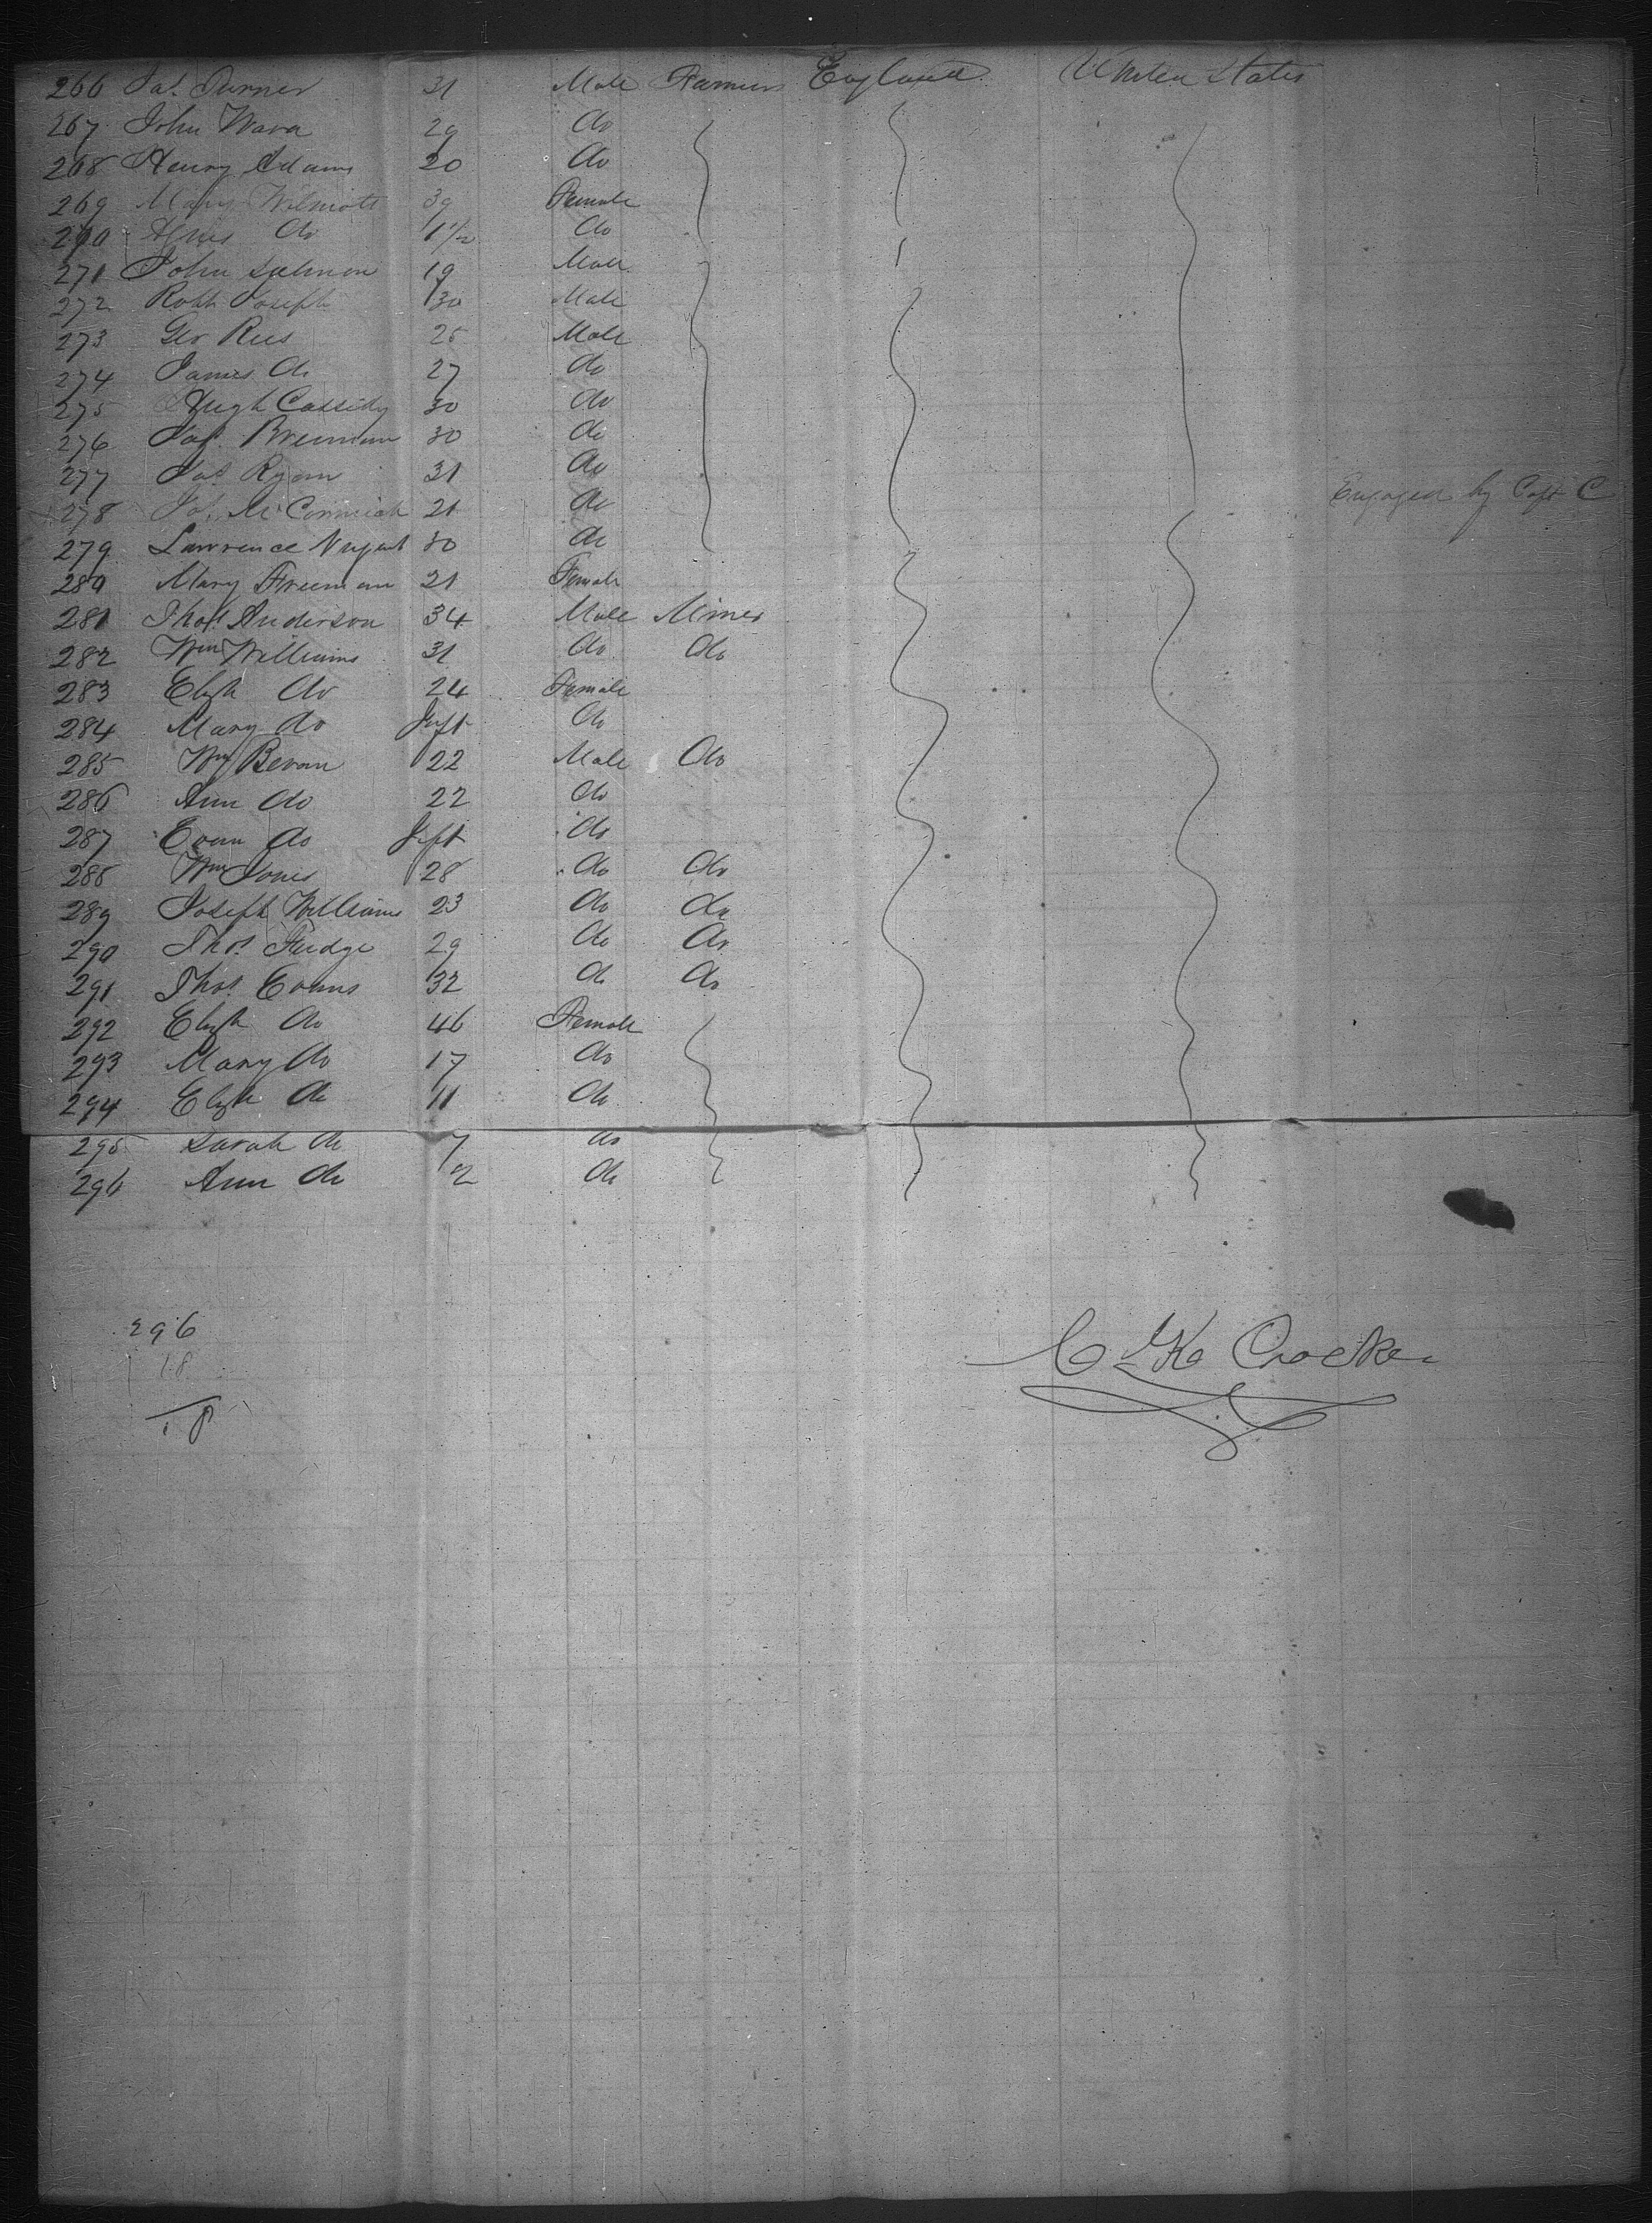 266 Jas. Turner 31 Male Farmer England United States
267 John Ward 29 do
268 Henry Adams 20 do
269 Mary Wilmott 39 Female
270 do 1 1/2 do
271 John Salmon 19 Male
272 Robt Joseph 30 Male
273 Geo Rees 25 Male
274 James do 27 do
275 Hugh Cassidy 30 do
276 Jas. Brennan 30 do
277 Jas. Ryan 31 do
278 McCormick 21 do Engaged by Capt C
279 Lawrence Nugent 30 do
280 Mary Freeman 21 Female
281 Thos. Anderson 34 Male Miner
282 Wm Williams 31 do do
283 Elizh do 24 Female
284 Mary do Inft do
285 Wm Bevan 22 Male do
286 Ann do 22 do
287 Evan do Inft do
288 Wm Jones 28 do do
289 Joseph Williams 23 do do
290 Thos. Fudge 29 do do
291 Thos. Evans 32 do do
292 Elizh do 46 Female
293 Mary do 17 do
294 Elizh do 11 do
295 Sarah do 7 do
296 Ann do 2 do
296
18
18
Crocker